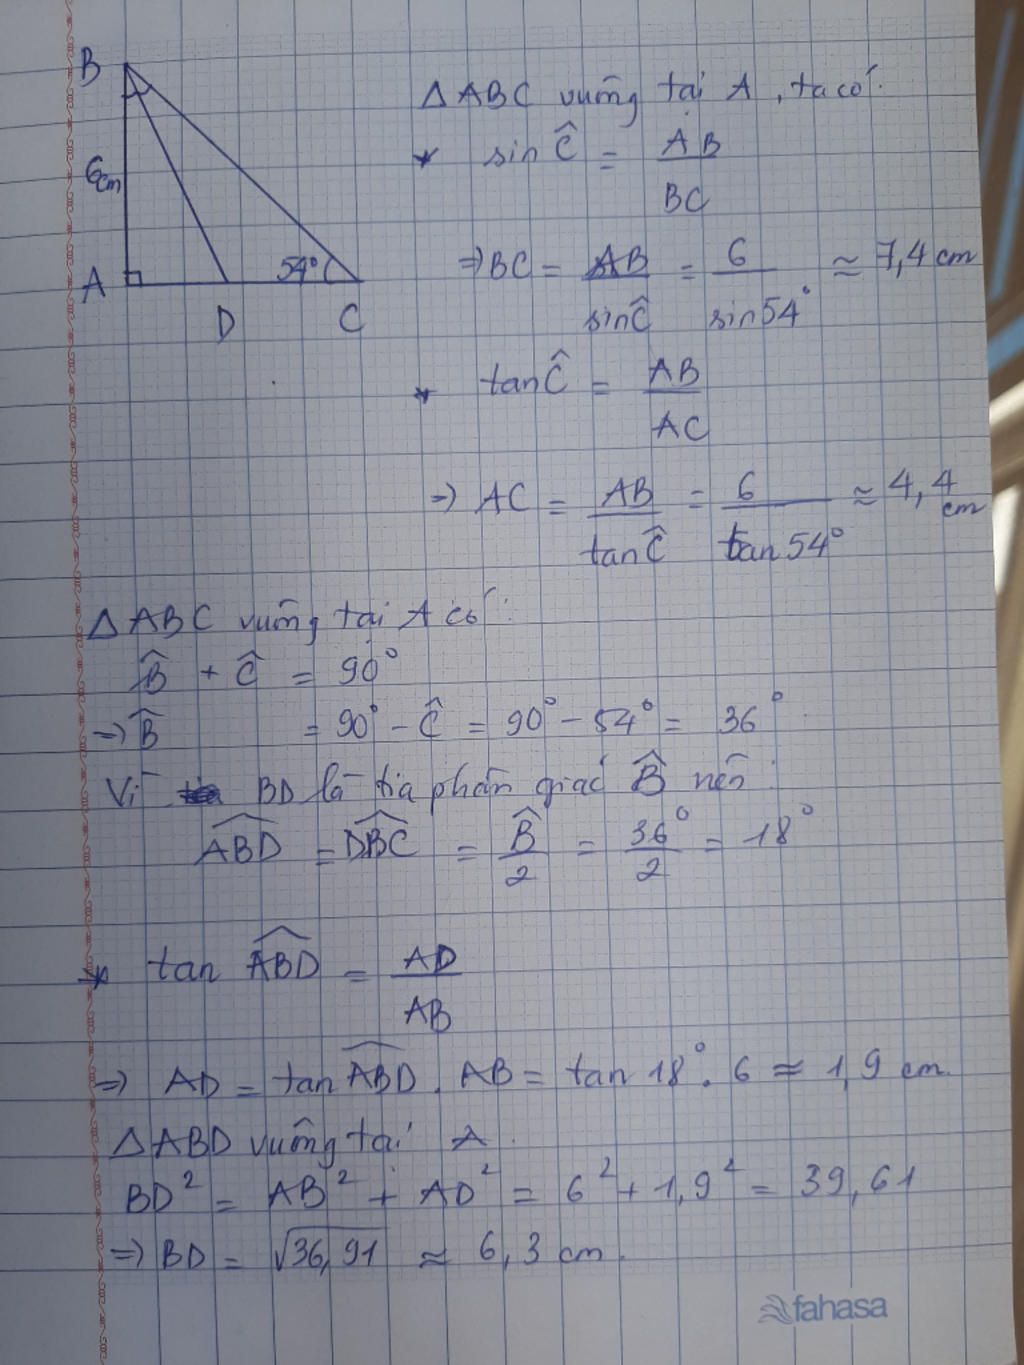 B
6cm
A
D
C
54°
Δ ABC vuông tại A, ta có:
* sin Ĉ = AB / BC
=> BC = AB / sin Ĉ = 6 / sin 54° ≈ 7,4 cm
* tan Ĉ = AB / AC
=> AC = AB / tan Ĉ = 6 / tan 54° ≈ 4,4 cm
Δ ABC vuông tại A có:
B̂ + Ĉ = 90°
=> B̂ = 90° - Ĉ = 90° - 54° = 36°
Vì BD là tia phân giác B̂ nên:
ABD̂ = DBĈ = B̂ / 2 = 36° / 2 = 18°
* tan ABD̂ = AD / AB
=> AD = tan ABD̂ . AB = tan 18° . 6 ≈ 1,9 cm.
Δ ABD vuông tại A.
BD² = AB² + AD² = 6² + 1,9² = 39,61
=> BD = √36,91 ≈ 6,3 cm.
fahasa